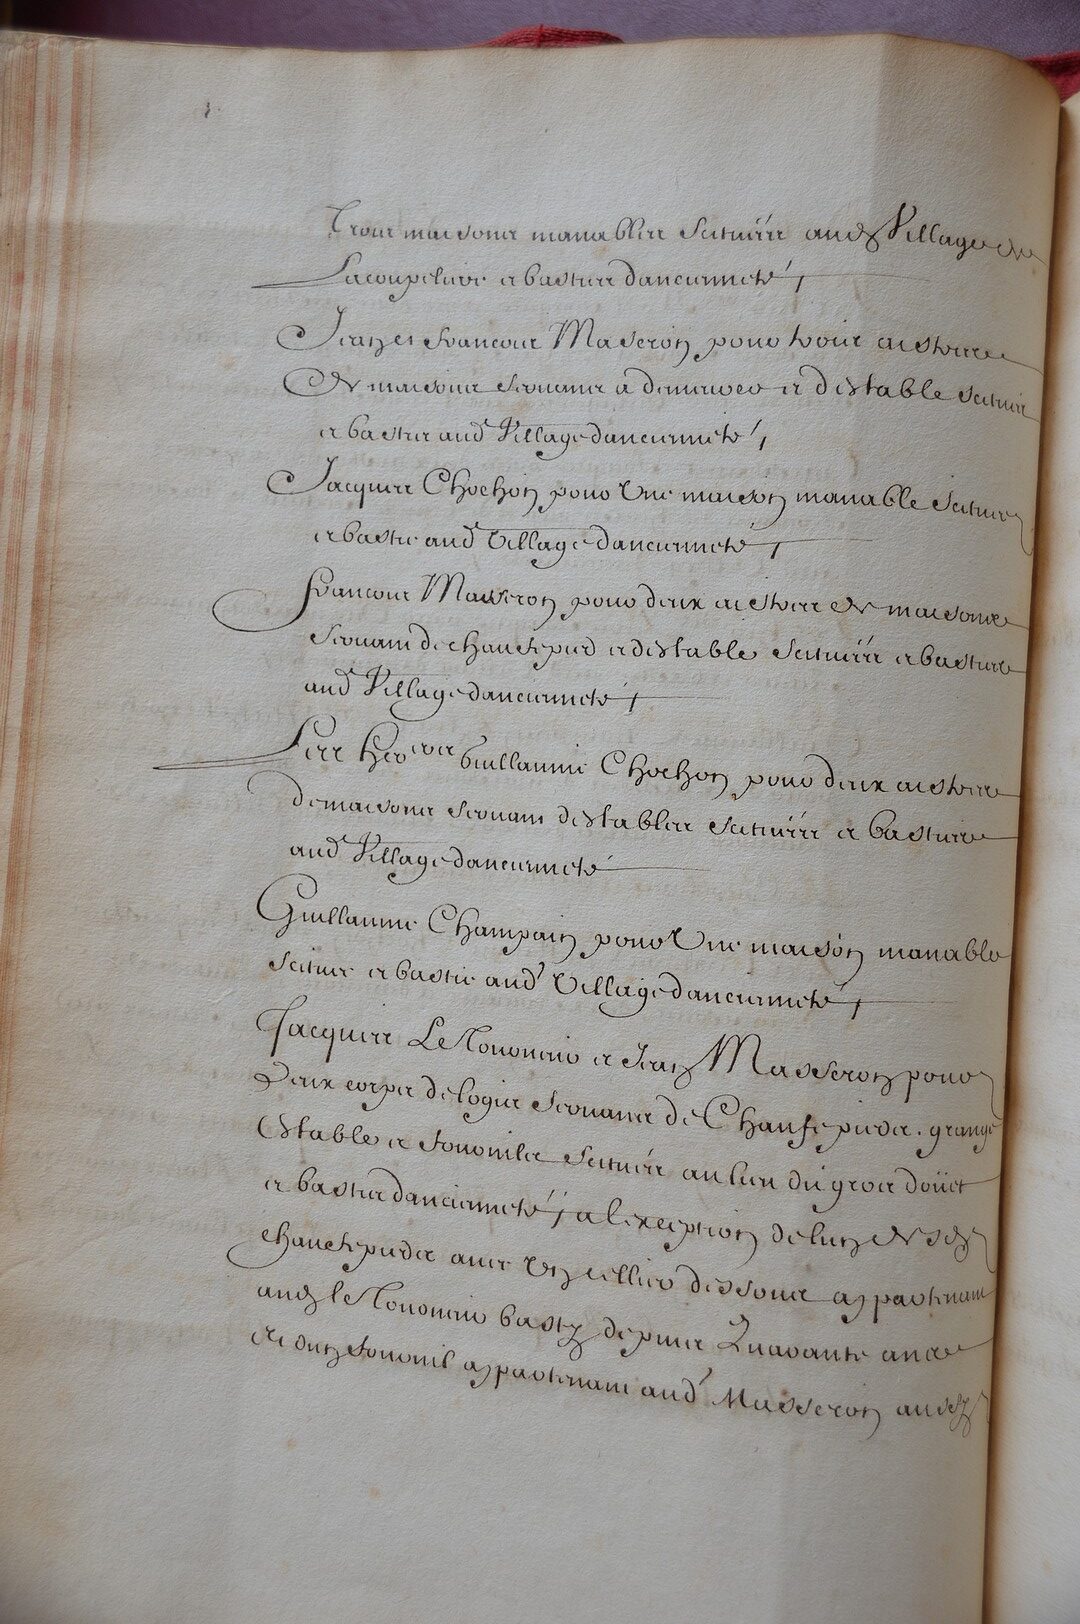 Trois maisons manables scituées aud Village de
Lacoupeliere et basties dancienneté,
Jean et francois Maseron pour trois aistres
De maisons servans a demeurer et destable scituées
et basties aud Village dancienneté,
Jacques Chochon pour Une maison manable scituee
et bastie aud Village dancienneté,
francois Masseron pour deux aistres de maisons
servant de chaufepied et destable scituées et basties
aud Village dancienneté,
Les herers Guillaume Chochon pour deux aistres
de maisons servant destables scituées et basties
aud Village dancienneté
Guillaume Champain pour Une maison manable
scituee et bastie aud Village dancienneté,
Jacques Le Tonnerre et Jean Masseron pour
Deux corps de logis servans de Chaufepieds. grange
Estable et fournils scitués au lieu du gros doüet
et bastis dancienneté, a lexception de lun desd
chaufepieds avec Un cellier dessous appartenant
aud le Tonnerre basty depuis Quarante ans
et dun fournil appartenant aud Masseron aussy